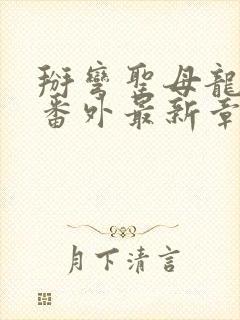 掰彎聖母龍
番外最新章
月下清言